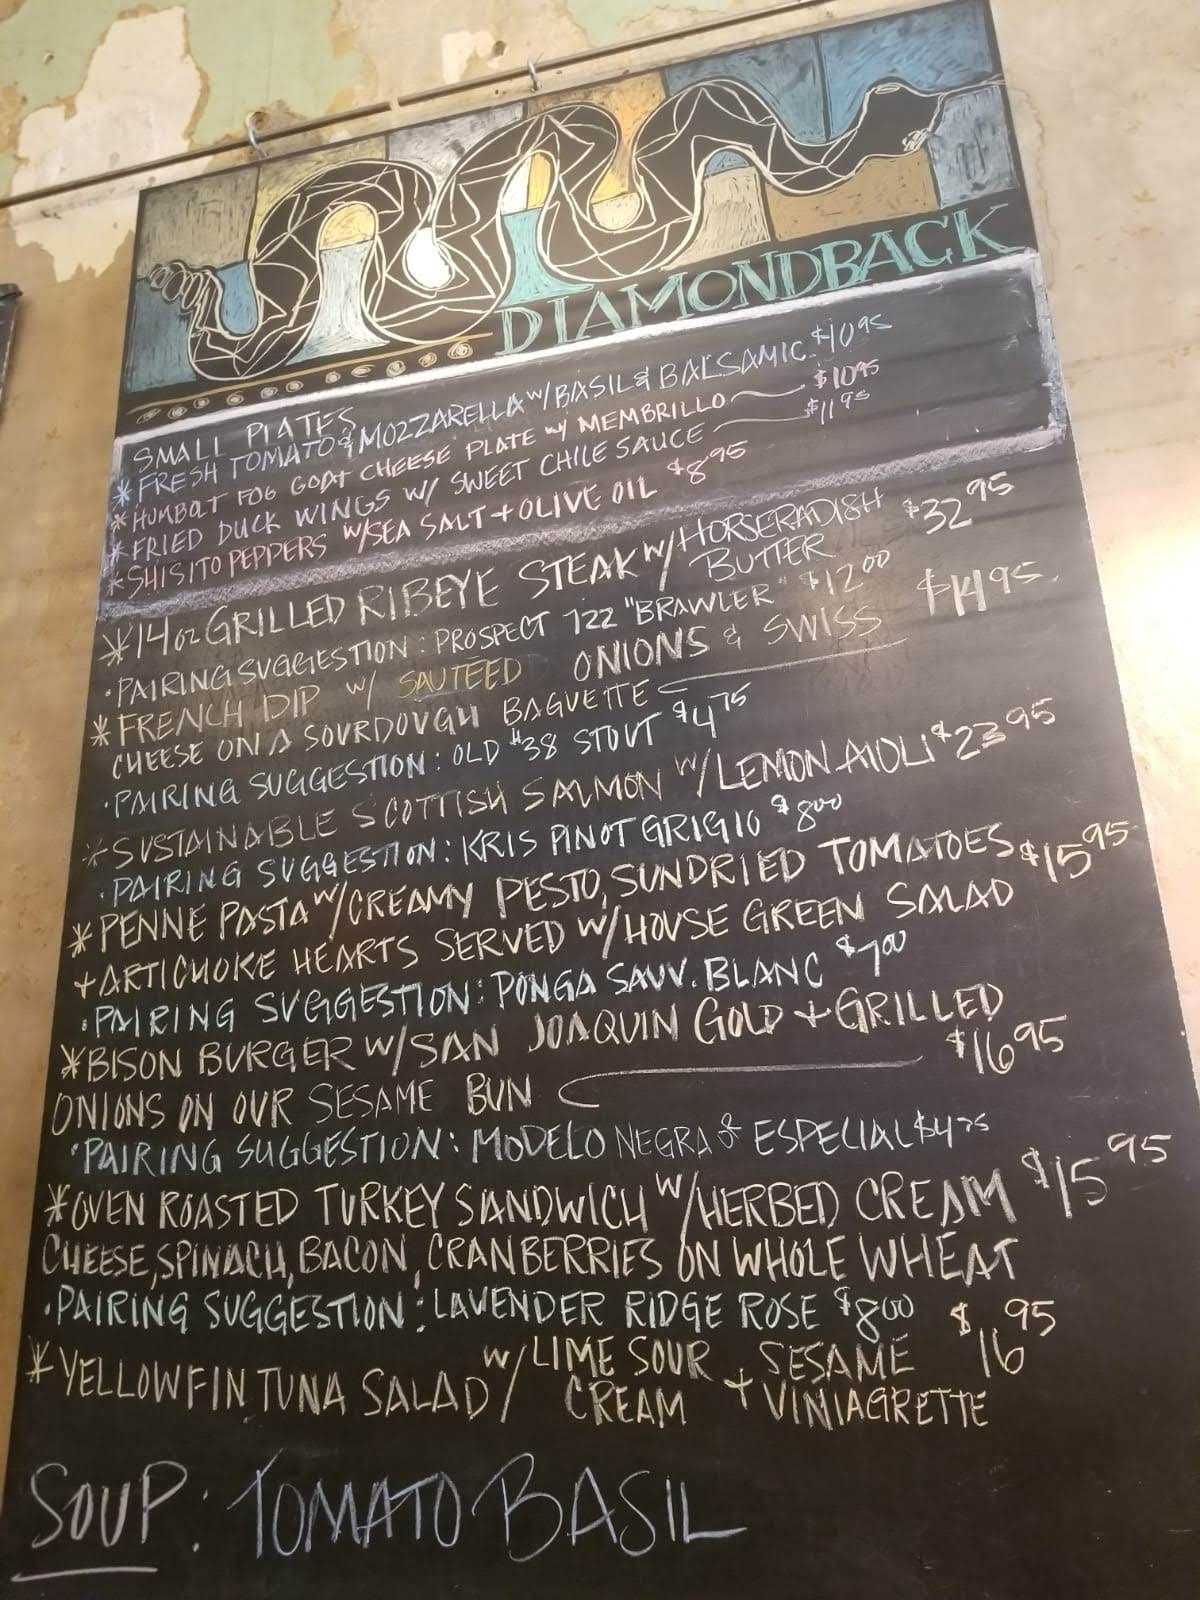 DIAMONDBACK
SMALL PLATES
* FRESH TOMATO & MOZZARELLA W/ BASIL & BALSAMIC $10 95
* HUMBOLT FOG GOAT CHEESE PLATE W/ MEMBRILLO $10 95
* FRIED DUCK WINGS W/ SWEET CHILE SAUCE $11 95
* SHISITO PEPPERS W/ SEA SALT + OLIVE OIL $8 95
* 14 oz GRILLED RIBEYE STEAK W/ HORSERADISH BUTTER $32 95
• PAIRING SUGGESTION: PROSPECT 722 "BRAWLER" $12 00
* FRENCH DIP W/ SAUTEED ONIONS & SWISS $14 95
CHEESE ON A SOURDOUGH BAGUETTE
• PAIRING SUGGESTION: OLD #38 STOUT $4 75
* SUSTAINABLE SCOTTISH SALMON W/ LEMON AIOLI $23 95
• PAIRING SUGGESTION: KRIS PINOT GRIGIO $8 00
* PENNE PASTA W/ CREAMY PESTO, SUNDRIED TOMATOES $15 95
+ ARTICHOKE HEARTS SERVED W/ HOUSE GREEN SALAD
• PAIRING SUGGESTION: PONGA SAUV. BLANC $7 00
* BISON BURGER W/ SAN JOAQUIN GOLD + GRILLED
ONIONS ON OUR SESAME BUN $16 95
• PAIRING SUGGESTION: MODELO NEGRA & ESPECIAL $4 75
* OVEN ROASTED TURKEY SANDWICH W/ HERBED CREAM $15 95
CHEESE, SPINACH, BACON, CRANBERRIES ON WHOLE WHEAT
• PAIRING SUGGESTION: LAVENDER RIDGE ROSE $8 00
* YELLOWFIN TUNA SALAD W/ LIME SOUR CREAM + SESAME VINIAGRETTE $16 95
SOUP: TOMATO BASIL